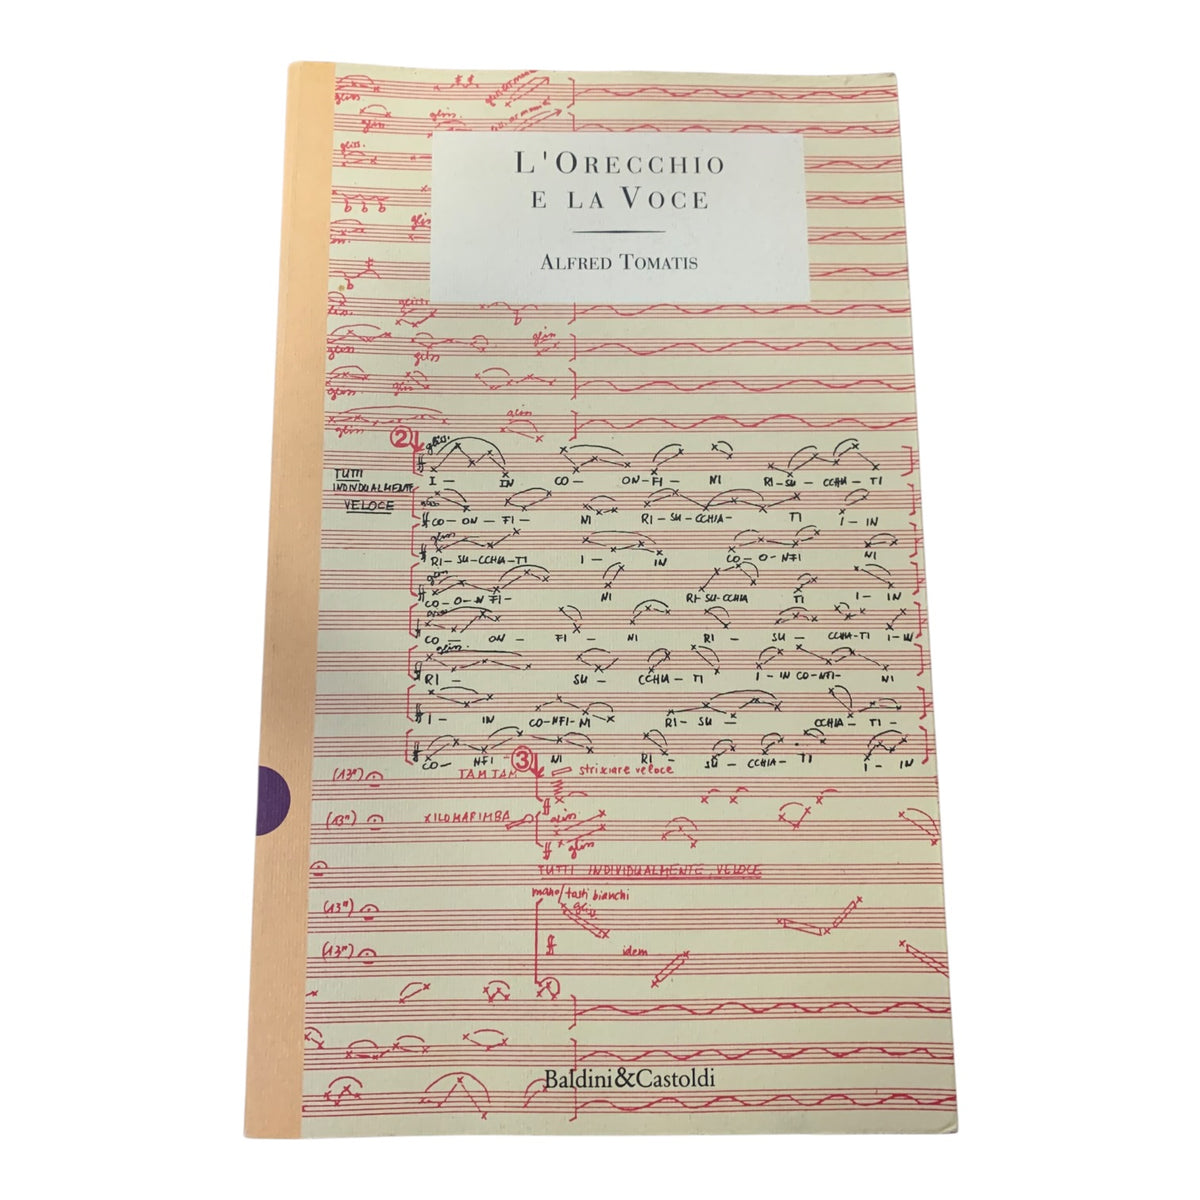 gliss
gliss
gliss.
gliss.
L'ORECCHIO
E LA VOCE
ALFRED TOMATIS
gliss
gliss
gliss
gliss
gliss
gliss
gliss
② gliss.
TUTTI
INDIVIDUALMENTE
VELOCE
I — IN CO — ON-FI — NI RI-SU — CCHIA — TI
CO — ON — FI — NI RI — SU — CCHIA — TI I — IN
gliss
RI-SU-CCHIA-TI I — IN CO — O-NFI NI
gliss
CO-O-N FI — NI RI-SU-CCHIA TI I — IN
CO — ON — FI — NI RI — SU — CCHIA-TI I-IN
gliss.
RI — SU — CCHIA — TI I — IN CO-NFI- NI
I — IN CO-NFI-NI RI — SU — CCHIA — TI —
CO — NFI — NI RI — SU — CCHIA — TI I — IN
(13") TAM TAM ③ strisciare veloce
(13") XILOMARIMBA gliss
ff gliss
TUTTI INDIVIDUALMENTE, VELOCE
mano/tasti bianchi
(13") gliss.
(13") ff idem
Baldini&Castoldi